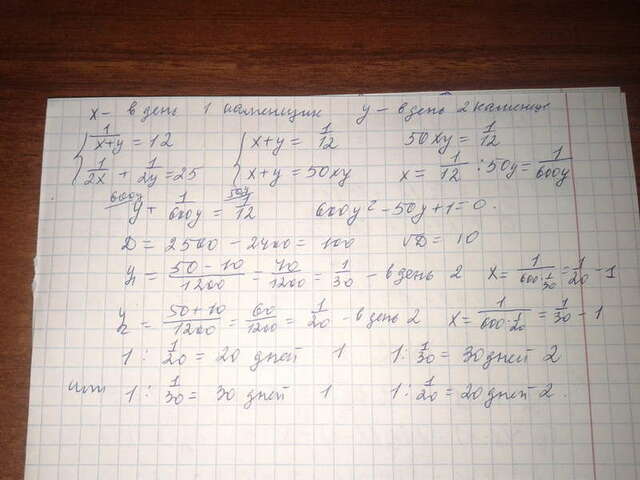 x - в день 1 каменщик y - в день 2 каменщ
1/(x+y) = 12 x+y = 1/12 50xy = 1/12
1/2x + 1/2y = 25 x+y = 50xy x = 1/12 : 50y = 1/600y
600y y + 1/600y = 50y 1/12 600y² - 50y + 1 = 0.
D = 2500 - 2400 = 100 √D = 10
y₁ = (50-10)/1200 = 40/1200 = 1/30 - в день 2 x = 1/(600·1/30) = 1/20 - 1
y₂ = (50+10)/1200 = 60/1200 = 1/20 - в день 2 x = 1/(600·1/20) = 1/30 - 1
1 : 1/20 = 20 дней 1 1 : 1/30 = 30 дней 2
или 1 : 1/30 = 30 дней 1 1 : 1/20 = 20 дней 2.